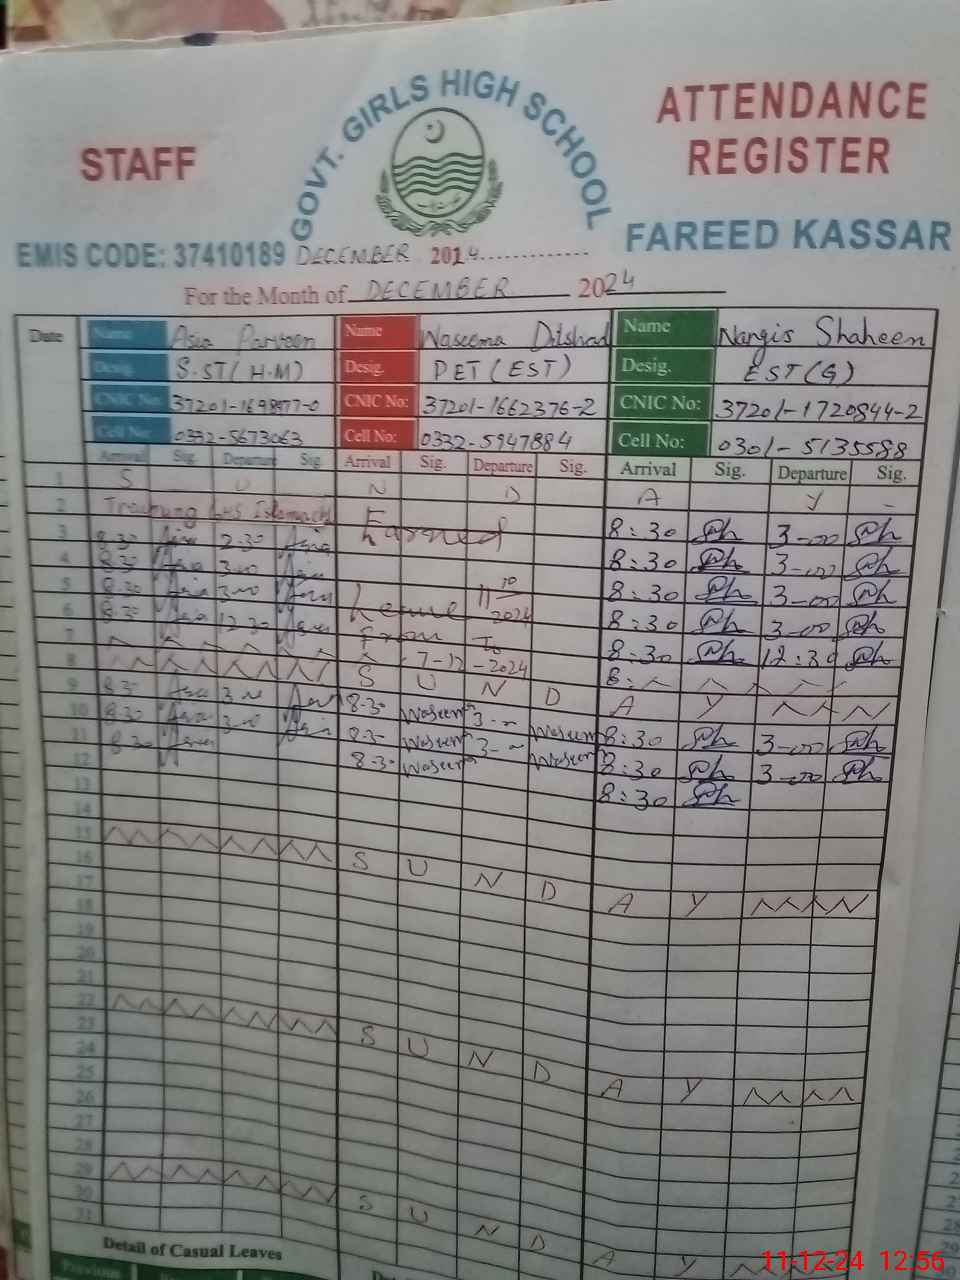 GOVT. GIRLS HIGH SCHOOL
STAFF
ATTENDANCE
REGISTER
EMIS CODE: 37410189 DECEMBER 2014
FAREED KASSAR
For the Month of DECEMBER 2024
Date Name Asia Parveen Name Waseema Dilshad Name Nargis Shaheen
Desig. S.ST(H.M) Desig. PET(EST) Desig. EST(G)
CNIC No: CNIC No: 37201-1662376-2 CNIC No: 37201-1720844-2
Cell No: 0332-5673063 Cell No: 0332-5947884 Cell No: 0301-5135588
Arrival Sig. Departure Sig. Arrival Sig. Departure Sig. Arrival Sig. Departure Sig.
1 S U N D A Y -
2 Earned 8:30 Sh 3-00 Sh
3 8.30 Asia 2:30 Asia 8:30 Sh 3-00 Sh
4 8.30 Asia 3-00 Asia 8:30 Sh 3-00 Sh
5 8.30 Asia 3-00 Asia Leave 8:30 Sh 3-00 Sh
6 8.30 Asia 12.30 Asia From To 8:30 Sh 12:30 Sh
7 7-12-2024 8:
8 S U N D A Y
9 8.30 Asia 3-00 Asia 8.30 Waseem 3-- Waseem 8:30 Sh 3-00 Sh
10 8.30 Asia 3-00 Asia 8.30 Waseem 3-- Waseem 8:30 Sh 3-00 Sh
11 8.30 Asia 8.30 Waseem 8:30 Sh
12
13
14
15 S U N D A Y
16
17
18
19
20
21
22 S U N D A Y
23
24
25
26
27
28
29 S U N D A Y
30
31
Detail of Casual Leaves
11-12-24 12:56